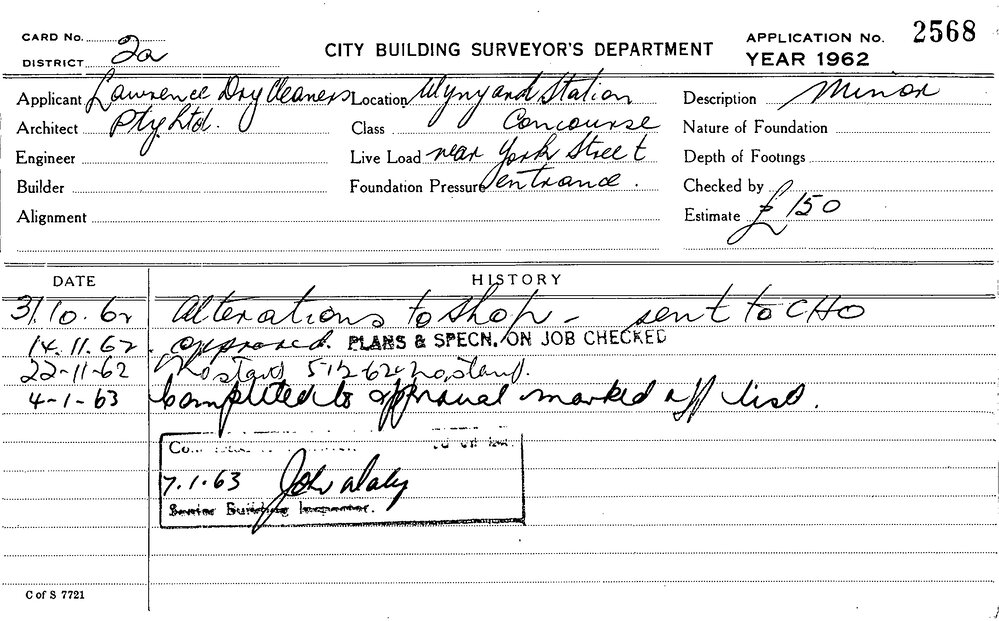 CARD No.
DISTRICT 2a
CITY BUILDING SURVEYOR'S DEPARTMENT
APPLICATION No. 2568
YEAR 1962
Applicant Lawrence Dry Cleaners Location Wynyard Station Description Minor
Architect Pty Ltd. Class Concourse Nature of Foundation
Engineer Live Load near York Street Depth of Footings
Builder Foundation Pressure entrance. Checked by
Alignment Estimate £150
DATE HISTORY
31.10.62 Alterations to shop - sent to CHO
14.11.62. approved. PLANS & SPECN. ON JOB CHECKED
22-11-62 No start 5-12-62 No start.
4-1-63 Completed to approval marked off list.
7.1.63 John Daly
Senior Building Inspector.
C of S 7721